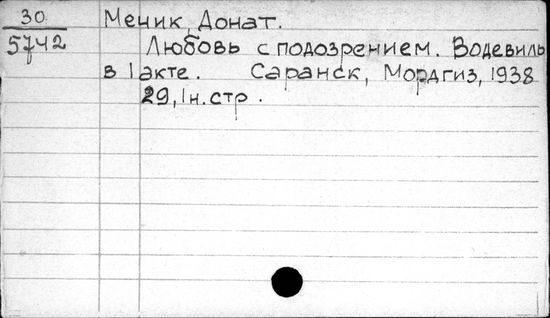 30
5742
Меник Донат.
Любовь с подозрением. Водевиль
в 1 акте. Саранск, Мордгиз, 1938
29, 1 н. стр.